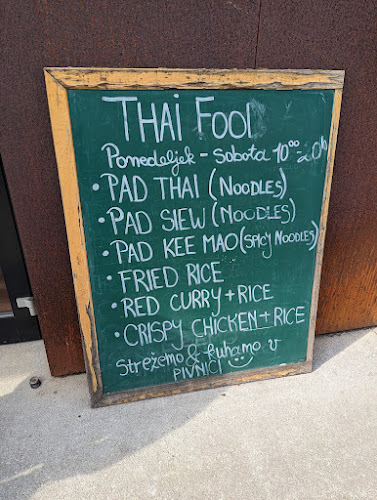 THAI FOOD
Ponedeljek - Sobota 10⁰⁰-20h
• PAD THAI (NOODLES)
• PAD SIEW (NOODLES)
• PAD KEE MAO (SPICY NOODLES)
• FRIED RICE
• RED CURRY + RICE
• CRISPY CHICKEN + RICE
Strežemo & kuhamo v
PIVNICI